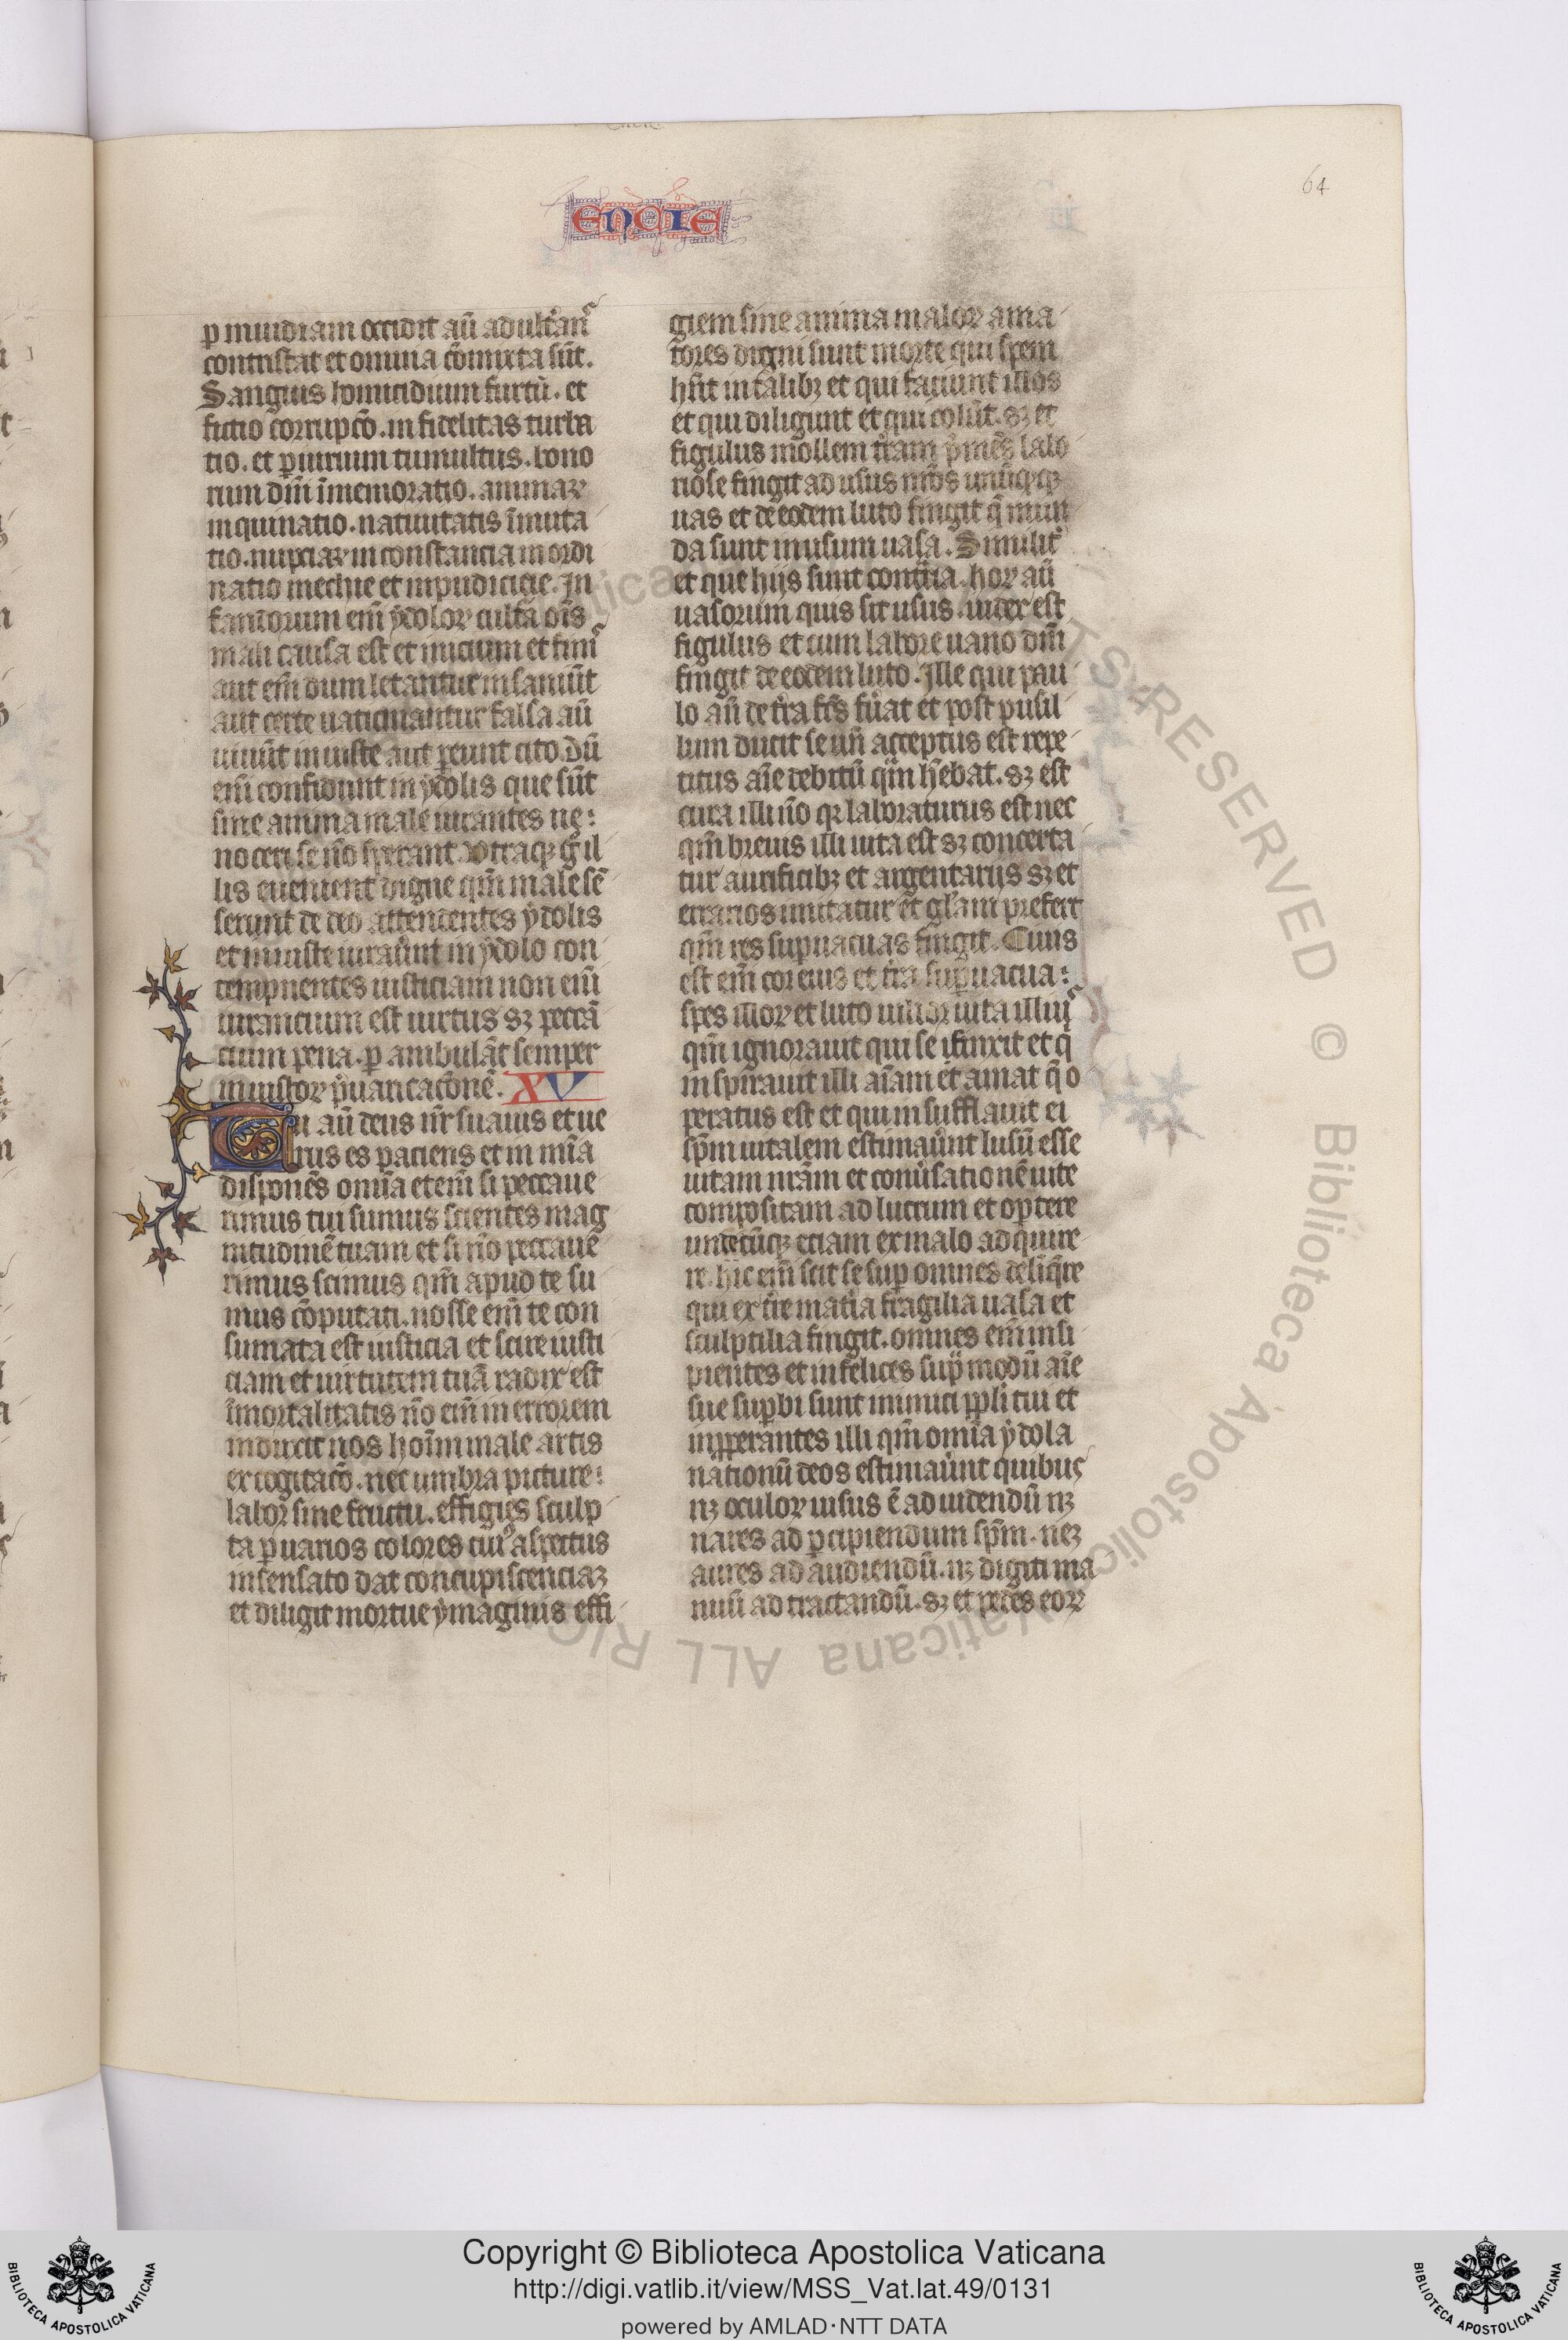 64
ENCIE
p inuidiam occidit aū adult'ans
contristat et omnia cōmixta sūt.
Sanguis homicidium furtū. et
fictio corrupcō. infidelitas turba
tio. et piurium tumultus. bono
rum dn̄i īmemoratio. animaꝝ
inquinatio. natiuitatis īmuta
tio. nupciaꝝ inconstancia inordi
natio mechie et inpudicicie. In
fandorum em̄ ẏdoloꝝ cultā oīs
mali causa est et inicium et finis
aut em̄ dum letantur insaniūt
aut certe uaticinantur falsa aū
uiuūt iniuste aut peunt cito. dū
em̄ confidunt in ẏdolis que sūt
sine anima male iurantes ne:
noceri se nō sperant. Utraqꝫ gͥ il
lis euenient digne qm̄ male sē
serunt de deo attendentes ẏdolis
et iniuste iurauūt in ẏdolo con
tempnentes iusticiam non em̄
iurancium est uirtus sꝫ peccā
cium pena. p ambulāt semper
iniustoꝝ p̄uaricacōnē. XV
Tu aū deus nr̄ suauis et ue
rus es paciens et in mīa
disponēs omīa etem̄ si peccaue
rimus tui sumus scientes mag
nitudinē tuam et si nō peccaue
rimus scimus qm̄ apud te su
mus cōputati. nosse em̄ te con
sumata est iusticia et scire iusti
ciam et uirtutem tuā radix est
īmortalitatis nō em̄ in errorem
induxit nos hoīm male artis
excogitacō. nec umbra picture:
labor sine fructu. effigies sculp
ta p uarios colores cui9 aspectus
insensato dat concupiscenciaꝫ
et diligit mortue ẏmaginis effi
giem sine anima maloꝝ ama
tores digni sunt morte qui spem
hn̄t in talibꝫ et qui faciunt illos
et qui diligunt et qui colūt. sꝫ et
figulus mollem tr̄am p̄mēs labo
riose fingit ad usus nr̄os unūqꝫqꝫ
uas et de eodem luto fingit q̄ mun
da sunt in usum uasa. Similit'
et que hijs sunt contr̄ia. hoꝝ aū
uasorum quis sit usus. iudex est
figulus et cum labore uano dm̄
fingit de eodem luto. Ille qui pau
lo aū de tr̄a fcs̄ fūat et post pusil
lum ducit se un̄ acceptus est repe
titus aīe debitū qm̄ hēbat. sꝫ est
cura illi nō qꝛ laboraturus est nec
qm̄ breuis illi uita est sꝫ concerta
tur aurificibꝫ et argentarijs sꝫ et
errarios imitatur et gl'am prefert
qm̄ res supuacuas fingit. Cinis
est em̄ cor eius et tr̄a supuacua:
spes illoꝝ et luto uilior uita illius
qm̄ ignorauit qui se finxit et q̄
inspirauit illi aīam et amat q̄ o
peratus est et qui insufflauit ei
spm̄ uitalem estimauūt lusū esse
uitam nr̄am et conūsationē uite
compositam ad lucrum et optere
undecūqꝫ etiam ex malo adquire
re. hic em̄ scit se sup omnes deliq̄re
qui ex tr̄e mat'ia fragilia uasa et
sculptilia fingit. omnes em̄ insi
pientes et infelices sup̄ modū aīe
sue supbi sunt inimici ppl'i tui et
inpperantes illi qm̄ omīa ẏdola
nationū deos estimauūt quibus
nꝫ oculoꝝ uisus ē ad uidendū nꝫ
nares ad pcipiendum spm̄. neꝫ
aures ad audiendū. nꝫ digiti ma
nuū ad tractandū. sꝫ et pedes eoꝝ
Copyright © Biblioteca Apostolica Vaticana
http://digi.vatlib.it/view/MSS_Vat.lat.49/0131
powered by AMLAD·NTT DATA